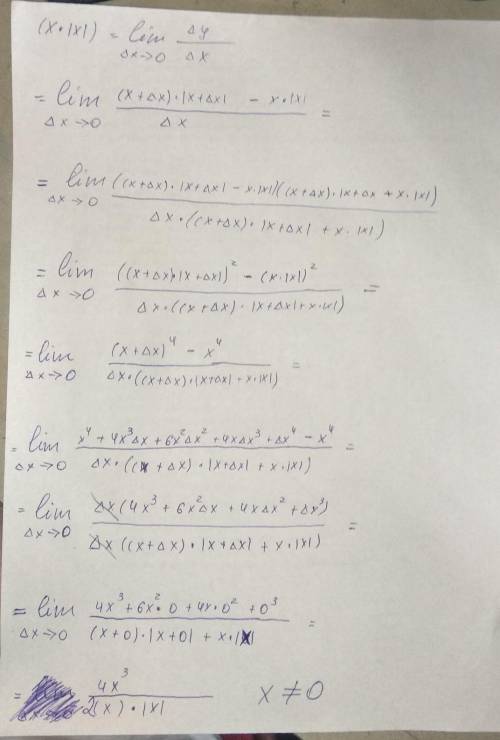 (x·|x|) = lim Δx→0 Δy / Δx
= lim Δx→0 (x+Δx)·|x+Δx| - x·|x| / Δx =
= lim Δx→0 ((x+Δx)·|x+Δx| - x·|x|)((x+Δx)·|x+Δx + x·|x|) / Δx·((x+Δx)·|x+Δx| + x·|x|)
= lim Δx→0 ((x+Δx)·|x+Δx|)² - (x·|x|)² / Δx·((x+Δx)·|x+Δx|+x·|x|) =
= lim Δx→0 (x+Δx)⁴ - x⁴ / Δx·((x+Δx)·|x+Δx|+x·|x|) =
= lim Δx→0 x⁴+4x³Δx+6x²Δx²+4xΔx³+Δx⁴-x⁴ / Δx·((x+Δx)·|x+Δx|+x·|x|) =
= lim Δx→0 Δx(4x³+6x²Δx+4xΔx²+Δx³) / Δx((x+Δx)·|x+Δx|+x·|x|) =
= lim Δx→0 4x³+6x²·0+4x·0²+0³ / (x+0)·|x+0|+x·|x| =
= 4x³ / 2(x)·|x| x≠0